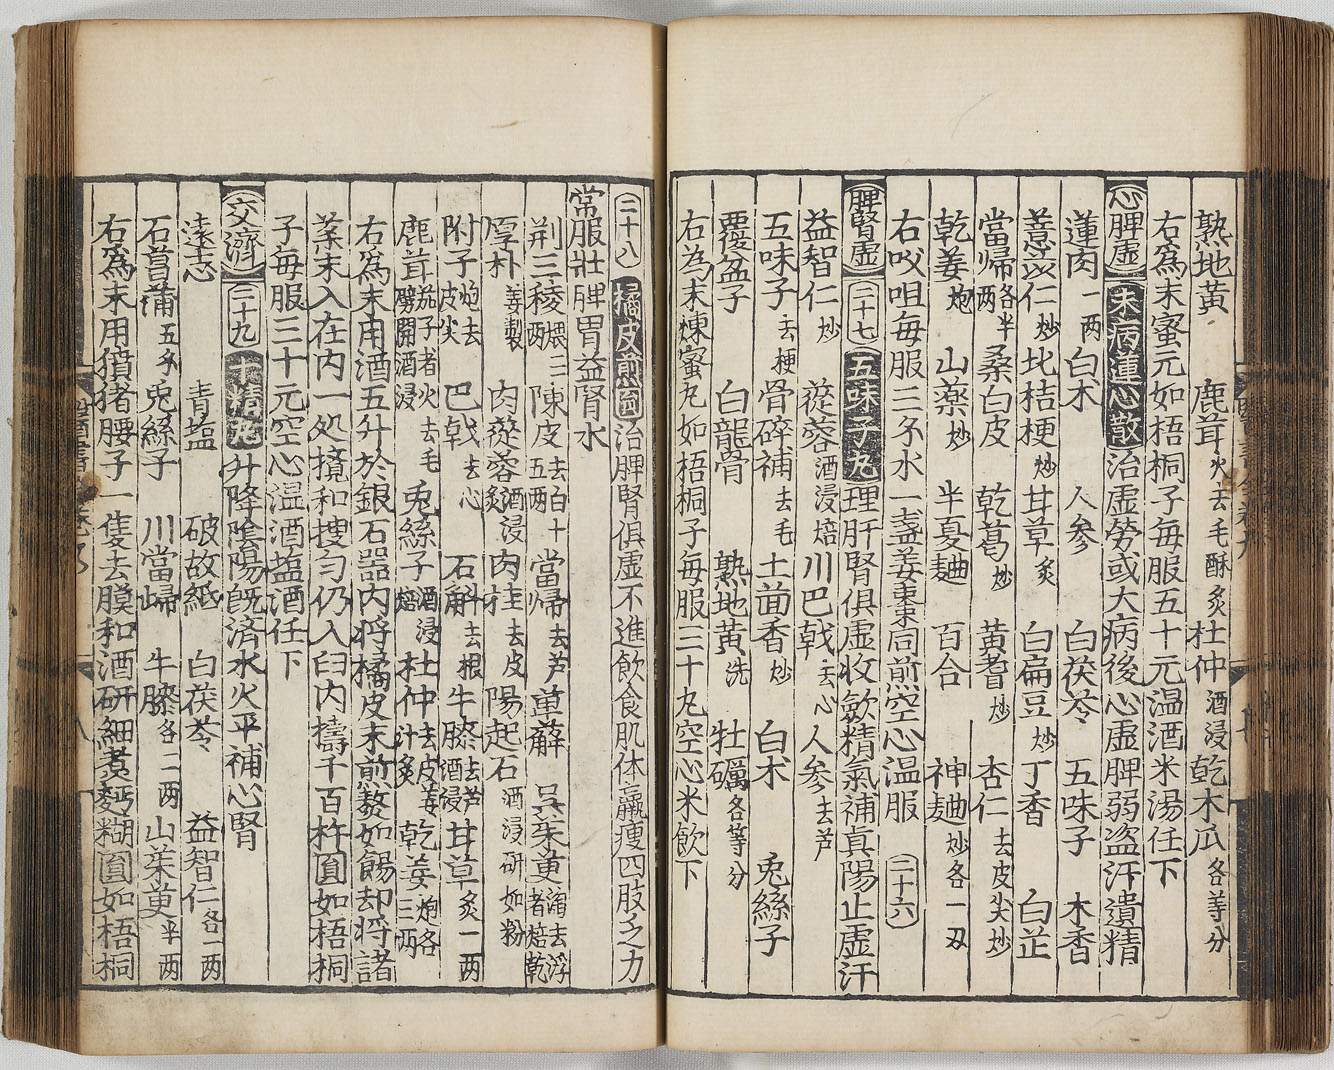 熟地黄 鹿茸火去毛酥炙杜仲酒浸乾木瓜各等分
右爲末蜜元如梧桐子每服五十元温酒米湯任下
心脾虚 朱病蓮心散 治虚勞或大病後心虚脾弱盗汗遺精
蓮肉一两白朮 人参 白茯苓 五味子 木香
薏苡仁炒北桔梗炒甘草炙 白扁豆炒丁香 白芷
當歸各半两桑白皮 乾葛炒 黄耆炒 杏仁去皮尖炒
乾姜炮 山藥炒 半夏麯 百合 神麯炒各一刄
右㕮咀每服三分水一盞姜棗同煎空心温服 二十六
脾腎虚 二十七 五味子丸 理肝腎俱虚收斂精氣補真陽止虚汗
益智仁炒 蓯蓉酒浸焙川巴戟去心人参去芦
五味子去梗骨碎補去毛土茴香炒 白朮 兎絲子
覆盆子 白龍骨 熟地黄洗 牡礪各等分
右為末煉蜜丸如梧桐子每服三十丸空心米飲下
二十八 橘皮煎圓 治脾腎俱虚不進飲食肌体羸痩四肢乏力
常服壮脾胃益腎水
荆三稜煨二两陳皮去白十五两 當歸去芦萆薢 呉茱萸淘去浮者焙乾
厚朴姜製 肉蓯蓉酒浸炙肉桂去皮 陽起石酒浸研如粉
附子炮去皮尖 巴戟去心 石斛去根牛膝去芦酒浸甘草炙一两
鹿茸茄子者火去毛劈開酒浸 兎絲子酒浸焙杜仲去皮姜汁炙乾姜炮各三两
右爲末用酒五升於銀石器内将橘皮末煎熬如餳却将諸
藥末入在内一処攪和搜匀仍入臼内擣千百杵圓如梧桐
子每服三十元空心温酒塩酒任下
交濟 二十九 十精丸 升降陰陽既済水火平補心腎
遠志 青塩 破故紙 白茯苓 益智仁各一两
石菖蒲五分兎絲子 川當歸 牛膝各二两 山茱萸平两
右爲末用豶猪腰子一隻去膜和酒研細煮麪糊圓如梧桐